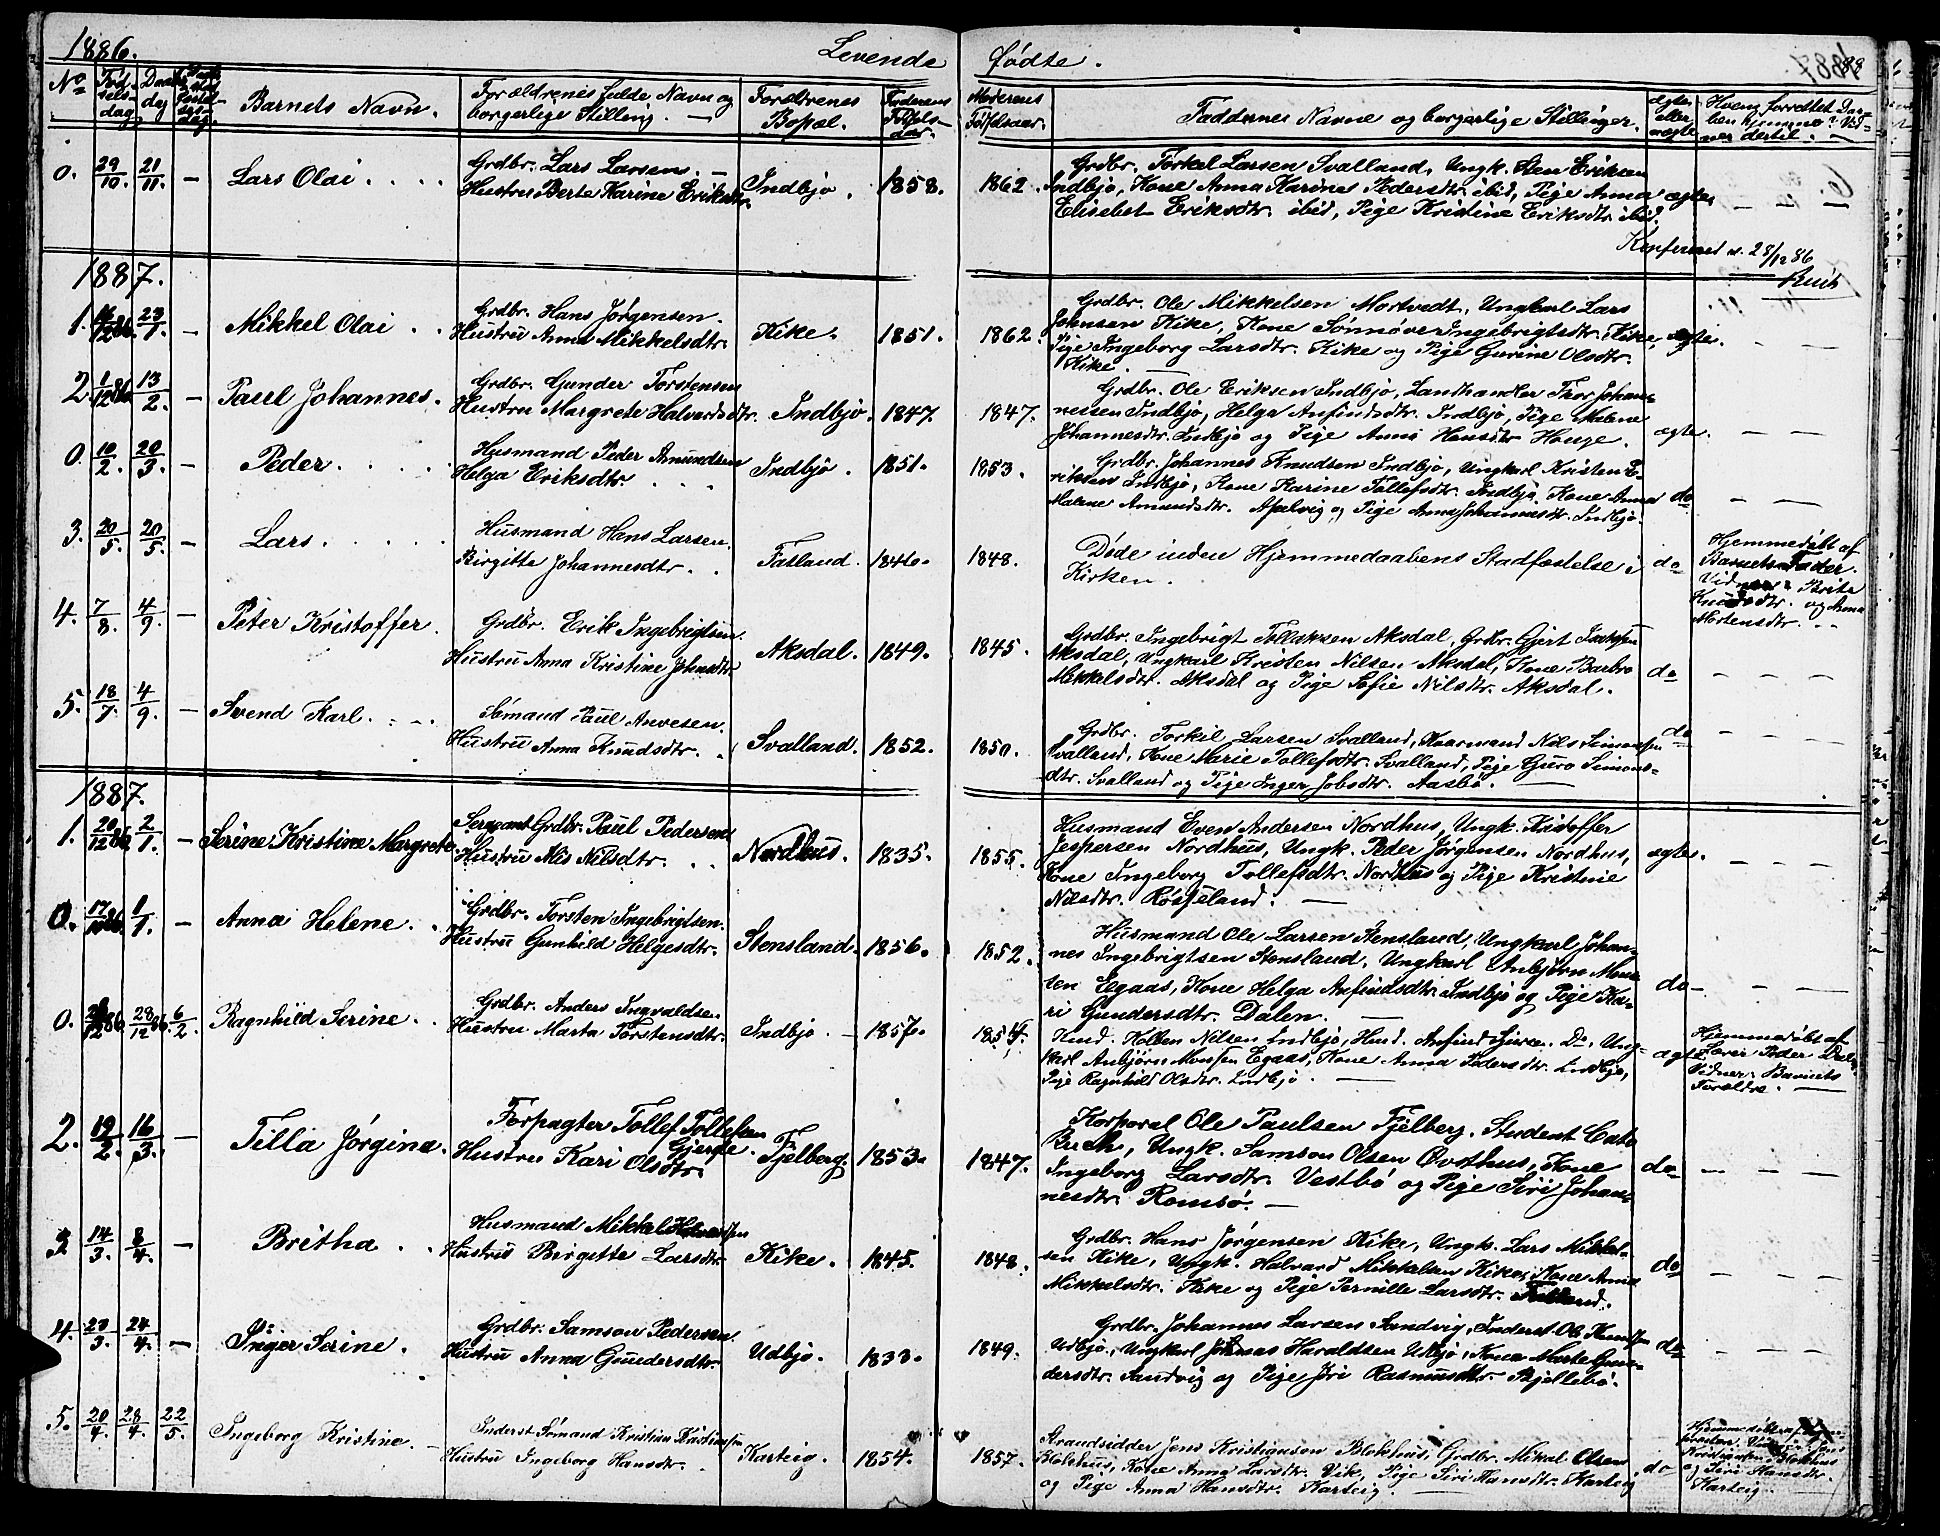 1886. Levende fødte.
No Fød-sels-dag Daab dag Barnets Navn. Forældrenes fulde Navn og borgerlige Stilling. Forældrenes Bopæl. Faderens Fødselsaar. Moderens Fødselsaar. Faddernes Navne og borgerlige Stillinger. ægte eller uægte
0. 29/10. 21/11. — Lars Olai . . . .
Grdbr. Lars Larsens. —
Hustru Berte Karine Eriksdtr.
Indbjo . 1858. 1862.
Grdbr. Torkel Larsen Svalland, Ungk. Sten Eriksen
Indbjo, Kone Anna Karines Pedersdtr. ibid, Pige Anna ægte
Elisebet Eriksdtr. ibid, Pige Kristine Eriksdtr. ibid.
Konfereret d. 28/12 86
1887.
1. 23/1. — Mikkel Olai . .
Grdbr. Hans Jørgensen.
Hustru Anna Mikkelsdtr.
Kike. 1851. 1862.
Grdbr. Ole Mikkelsen Mortvedt, Ungkarl Lars
Johnsen Kike, Kone Sønnøve Ingebrigtsdtr. Kike, ægte.
Pige Ingeborg Larsdtr. Kike og Pige Gurine Olsdtr.
Kike. —
2. 1/12 86 13/2. — Paul Johannes.
Grdbr. Gunder Torstensen
Hustru Margrete Halvardsdtr.
Indbjo. 1847. 1847.
Grdbr. Ole Eriksen Indbjo, Landhandler Thor Johan-
nessen Indbjo, Helga Anfindsdtr. Indbjo, Pige Malene
Johannesdtr. Indbjo og Pige Anna Hansdtr Hauge. ægte. — —
0. 10/2. 20/3. — Peder. . . .
Husmand Peder Amundsen
Helga Eriksdtr . . .
Indbjo . 1851. 1853.
Grdbr. Johannes Knudsen Indbjo, Ungkarl Kristen E-
riksen Indbjo, Kone Karine Tollefsdtr. Indbjo. Kone Anna do
Malene Amundsdtr. Apelvig og Pige Anna Johannesdtr. Indbjo. — —
3. 20/5. 20/5. — Lars. . . . .
Husmand Hans Larsen.
Birgitte Johannesdtr. .
Fatland. 1846. 1848.
Døde inden Hjemmedaabens Stadfæstelse i do
Kirken.
Hjemmedøbt af
Barnets Fader.
Vidner: Brite
Knudsdtr. og Anna
Mortensdtr. . .
4. 7/8. 4/9. — Peter Kristoffer.
Grdbr. Erik Ingebrigtsen.
Hustru Anna Kristine Johnsdtr.
Aksdal. 1849. 1845.
Grdbr. Ingebrigt Tollaksen Aksdal, Grdbr. Gjert
Aksdal, Ungkarl Kristen Nilsen Aksdal, Kone Barbro
Mikkelsdtr. Aksdal og Pige Sofie Nilsdtr. Aksdal. do — — —
5. 18/7. 4/9. — Svend Karl. . . .
Sømand Paul
Hustru Anna Knudsdtr. .
Svalland. 1852. 1850.
Grdbr. Torkil Larsen Svalland, Kaarmand Nils Simonsen do
Svalland, Kone Marie Tollefsdtr. Svalland, Pige Guro Simons-
dtr. Svalland og Pige Inger Jobsdtr. Aasbø. —
1887.
1. 20/12 86 2/1. — Serine Kristine Margrete.
Sergeant Grdbr. Paul Pedersen
Hustru Nilsdtr. . .
Nordhus. 1835. 1855.
Husmand Even Andersen Nordhus, Ungk. Kristoffer
Jespersen Nordhus, Ungk. Peder Jørgensen Nordhus, ægte. — — —
Kone Ingeborg Tollefsdtr. Nordhus og Pige Kristine
Nilsdtr. —
0. 1/1. — Anna Helene. .
Grdbr. Torsten Ingebrigtsen.
Hustru Gunhild Helgesdtr.
Stensland. 1856. 1852.
Husmand Ole Larsen Stensland, Ungkarl Johan-
nes Ingebrigtsen Stensland, Ungkarl Anbjørn Mon-
sen Egaas, Kone Helga Anfindsdtr. Indbjo og Pige Ka- do — — —
ri Gundersdtr. Dalen. —
0. 28/12 86. 6/2. Ragnhild Serine. .
Grdbr. Anders Ingvaldsen
Hustru Marta Torstensdtr.
Indbjo — 1857. 1854.
Husd. Holben Nilsen Indbjo, Husd. Anfind Do, Ung-
karl Anbjørn Monsen Egaas, Kone Anna Pedersdtr. Indbjo, ægte
Pige Ragnhild Olsdtr. Indbjo. —
Hjemmedøbt af
Lærer Peder
Vidner: Barnets
Forældre. —
2. 19/2. 16/3. — Tilla Jørgina.
Forpagter Tollef Tollefsen
Gjerde.
Hustru Kari Olsdtr.
Fjelberg. 1853. 1847.
Korporal Ole Paulsen Fjelberg. Student Cato
Buch, Ungk. Samson Olsen Øvsthus, Kone
Ingeborg Larsdtr. Vestbø og Pige Siri Johan- do — — —
nesdtr. Romsø. —
3. 14/3. — Britha . .
Husmand Mikkel
Hustru Birgitte Larsdtr.
Kike. 1845. 1848.
Grdbr. Hans Jørgensen Kike, Ungk. Lars Mikkel-
sen Kike, Ungk. Halvard Mikkelsen Kike, Kone Anna do
Mikkelsdtr. Kike og Pige Pernille Larsdtr. — — —
4. 20/3. 24/4. — Inger Serine.
Grdbr. Samson Pedersen.
Hustru Anna Gundersdtr.
Udbjo. 1833. 1849.
Grdbr. Johannes Larsen Sandvig, Inderst Ole Knudsen
Udbjo, Ungkarl Haraldsen Udbjo, Kone Marte Gun- do — — —
dersdtr. Sandvig og Pige Siri Rasmusdtr. Skjellebø.
5. 20/4. 28/4. 22/5. Ingeborg Kristine. —
Inderst Sømand Kristian Kristiansen
Hustru Ingeborg Hansdtr. .
Karteig. 1854. 1857.
Strandsidder Jens Kristianson Blokhus, Grdbr. Mikal Olsen
Blokhus, Kone Anna Larsdtr. Vik, Pige Siri Hansdtr. Karteig do
og Pige Anna Hansdtr. Karteig. —
Vidner: Jens
Kristiansen Blokhus
og Siri Hansdtr.
Karteig. —